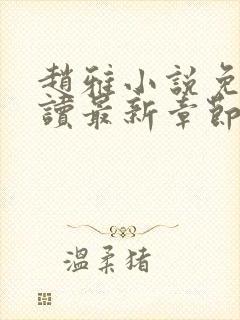 趙雅小說免
讀最新章節
溫柔猪